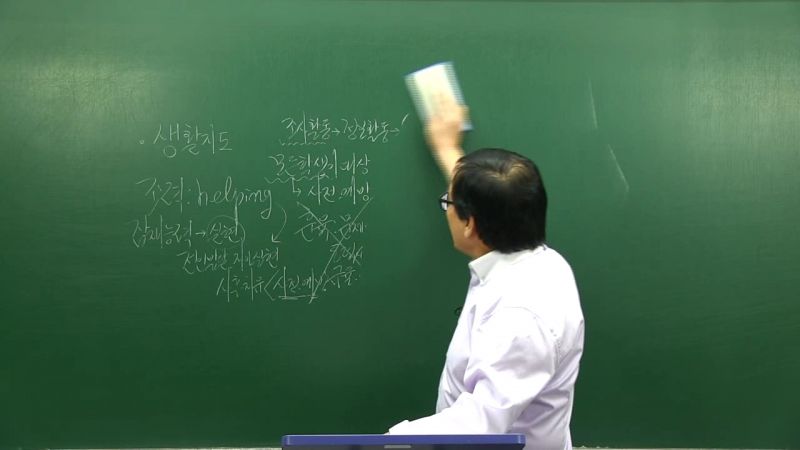 · 생활지도
조사활동→정보활동→
모든학생이 대상
↳ 사전.예방
조력: helping
잠재능력→실현
전인발달 자아실현
사후치유<사전.예방
훈육. 문제